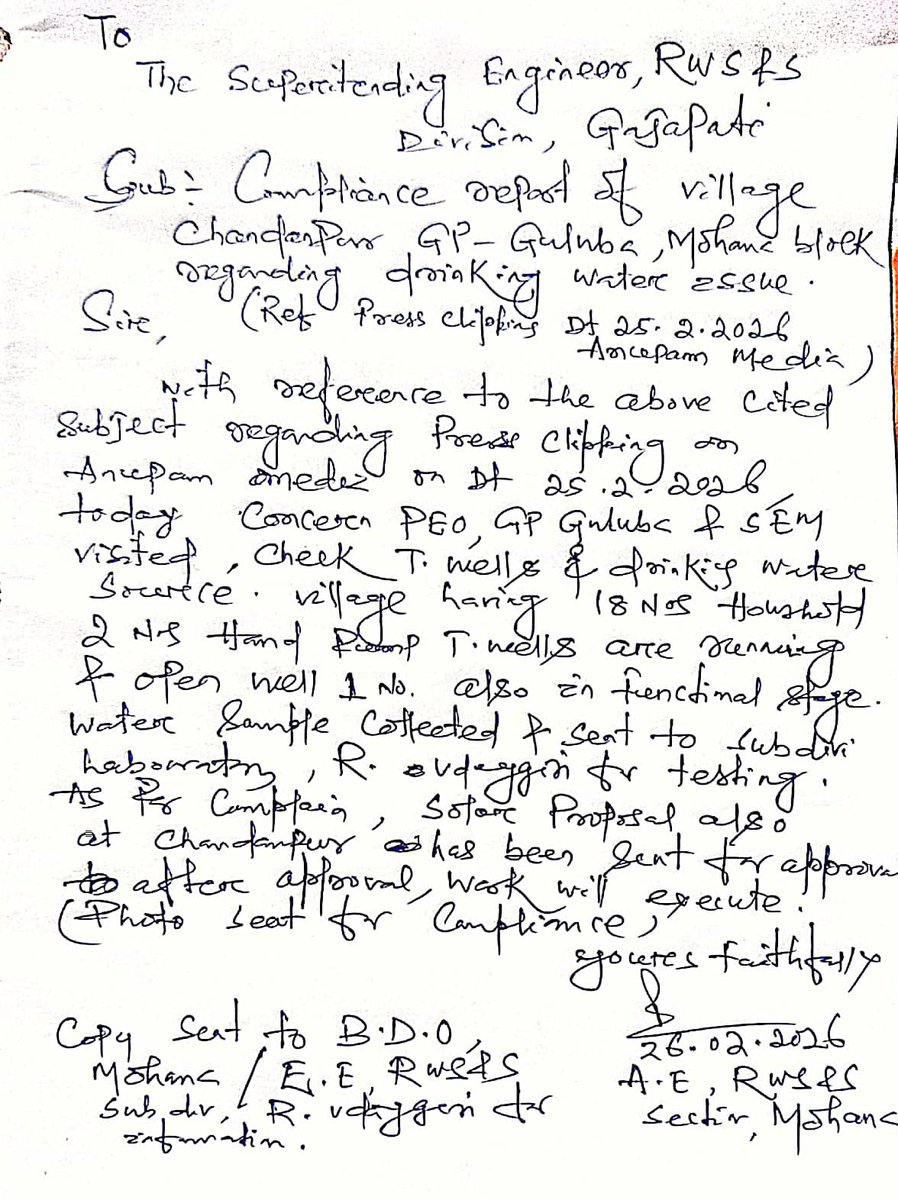 To
The Superitending Engineer, RWS&S
Division, Gajapati
Sub:- Compliance report of village
Chandanpur GP- Guluba, Mohana block
regarding drinking water issue.
Sir, (Ref Press clipping Dt 25.2.2026
Anupam Media)
With reference to the above cited
subject regarding Press clipping on
Anupam media on Dt 25.2.2026,
today Concern PEO, GP Guluba & SEM
visited, Check T.wells & drinking water
Source. village having 18 Nos Houshold
2 Nos Hand Pump T.wells are running
& open well 1 No. also in functinal stage.
Water Sample Collected & sent to subdivi
Labouratory, R. udaygiri for testing.
As Per Complain, Solar Proposal also
at Chandanpur has been sent for approval
after approval, work will execute.
(Photo sent for Compliance)
yours faithfully
26.02.2026
Copy sent to B.D.O, A.E, RWS&S
Mohana / E.E, RWS&S section, Mohana
Sub div, R. udaygiri for
information.